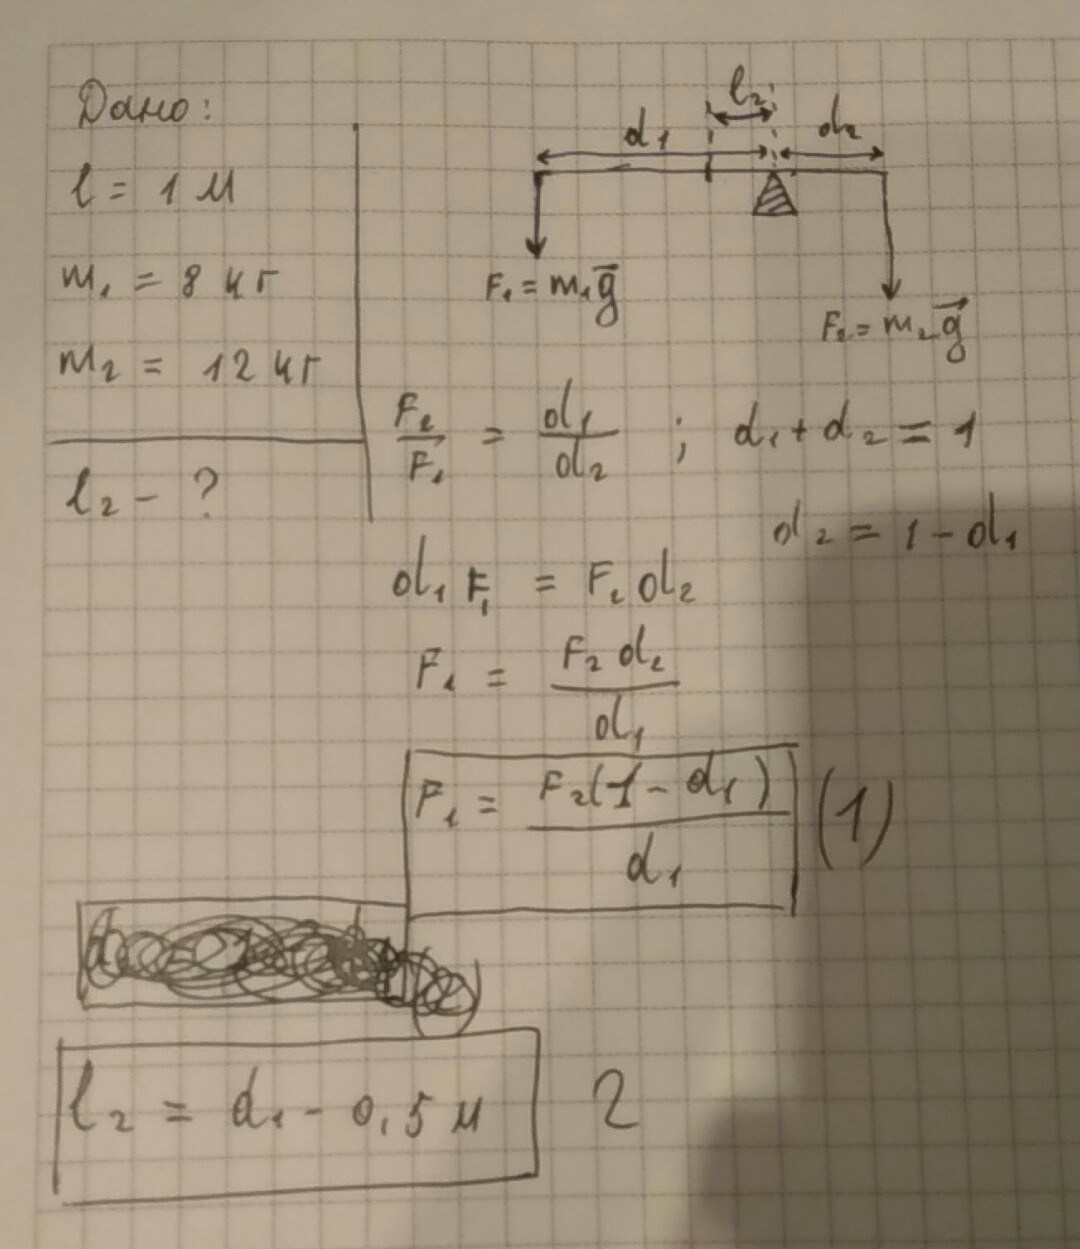 Дано:
l = 1 м
m₁ = 8 кг
m₂ = 12 кг
l₂ - ?
l₂
d₁ d₂
F₁ = m₁g⃗
F₂ = m₂g⃗
F₂/F₁ = d₁/d₂ ; d₁ + d₂ = 1
d₂ = 1 - d₁
d₁ F₁ = F₂ d₂
F₁ = F₂ d₂ / d₁
F₁ = F₂(1 - d₁) / d₁ (1)
l₂ = d₁ - 0,5 м 2